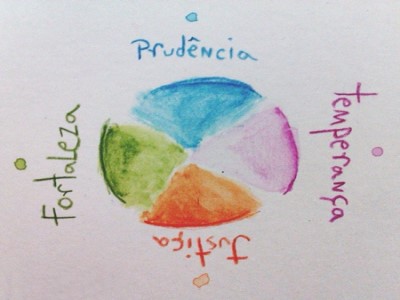 Prudência
temperança
Justiça
Fortaleza